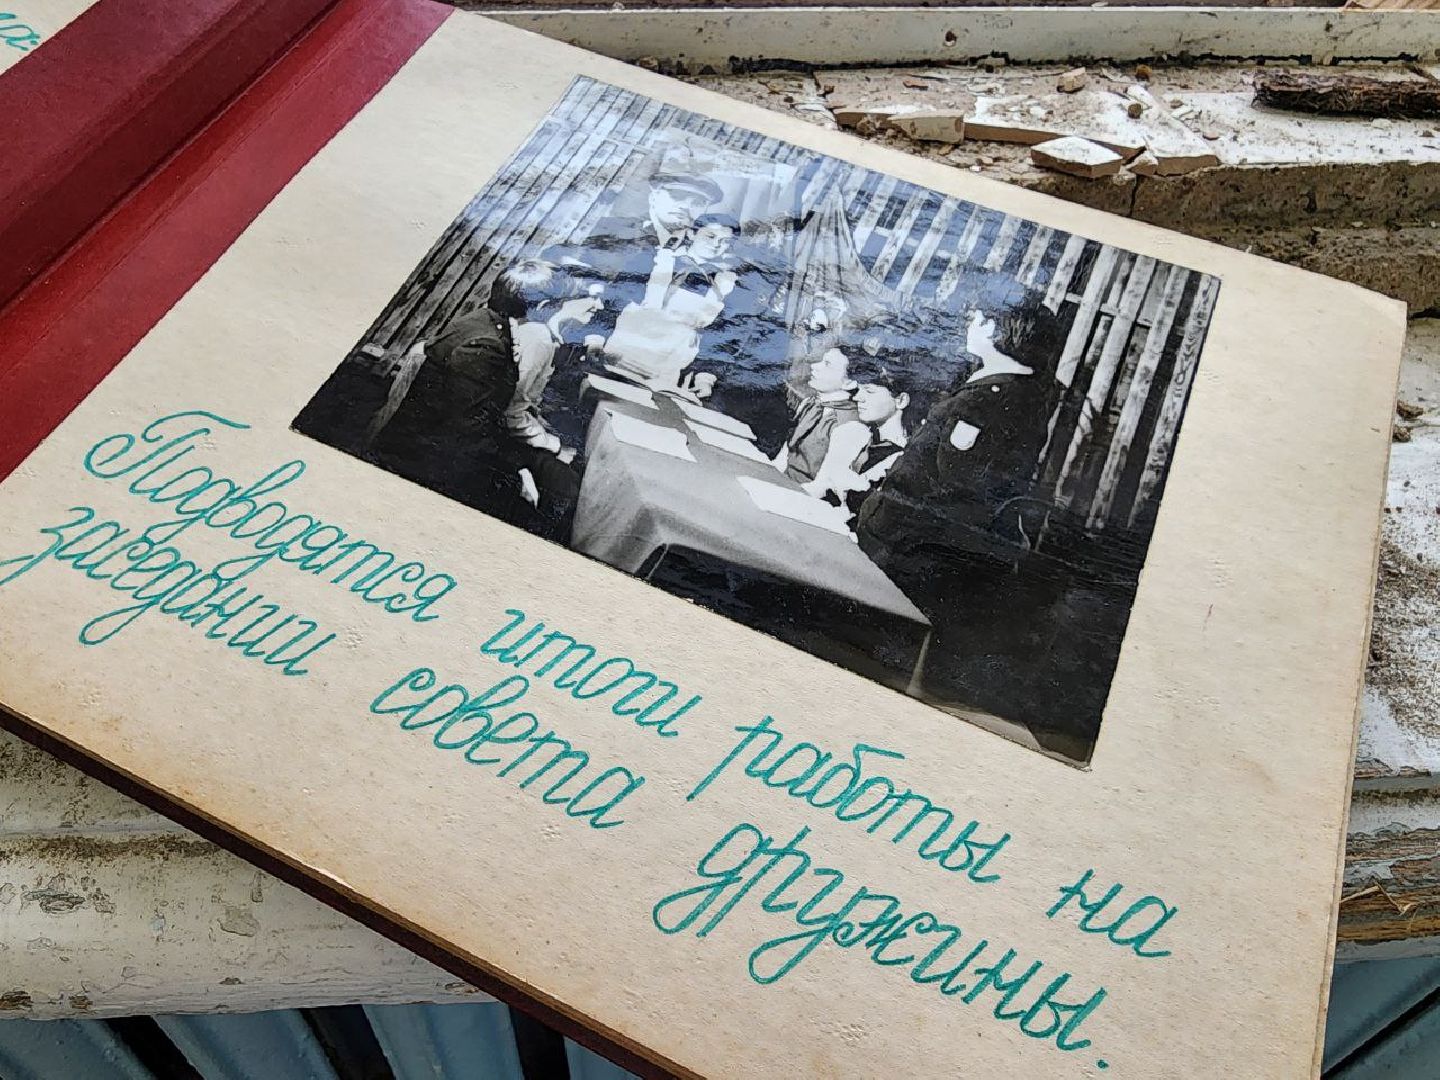 Подводятся итоги работы на
заседании совета дружины.